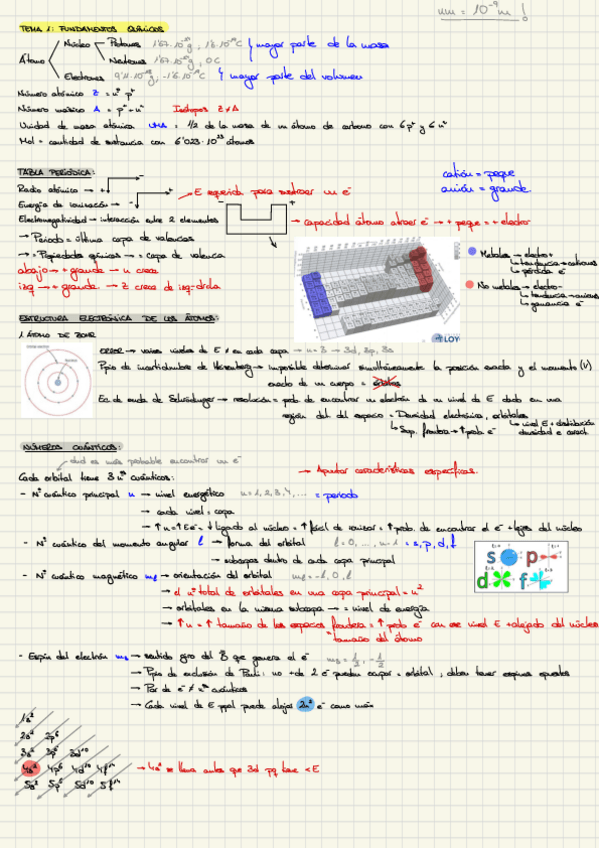 nm = 10⁻⁹ m !
TEMA 1: FUNDAMENTOS QUÍMICOS
Átomo
Núcleo
Protones
mayor parte de la masa
Neutrones
Electrones
mayor parte del volumen
Número atómico Z = nº p⁺
Número másico A = p⁺ + nº Isótopos Z ≠ A
Unidad de masa atómica UMA = 1/2 de la masa de un átomo de carbono con 6p⁺ y 6nº
Mol = cantidad de sustancia con 6'023·10²³ átomos
TABLA PERIÓDICA:
catión = peque
anión = grande
Radio atómico → +
Energía de ionización →
E requerida para extraer un e⁻
Electronegatividad → interacción entre 2 elementos
→ capacidad átomo atraer e⁻ → + peque = + electro
→ Periodo = última capa de valencia
→ = Propiedades químicas → = capa de valencia
abajo → + grande → n crece
izq → + grande → Z crece de izq-drcha
Metales → electro+
↳ tendencia → cationes
↳ pérdida e⁻
No metales → electro-
↳ tendencia → aniones
↳ ganancia e⁻
ESTRUCTURA ELECTRÓNICA DE LOS ÁTOMOS:
1. ÁTOMO DE BOHR
ERROR → varios niveles de E ≠ en cada capa → n = 3 → 3d, 3p, 3s
Ppio de incertidumbre de Heisenberg → imposible determinar simultáneamente la posición exacta y el momento (V)
exacto de un cuerpo = órbitas
Ec de onda de Schrödinger → resolución = prob. de encontrar un electrón de un nivel de E dado en una
región det. del espacio = Densidad electrónica, orbitales
↳ Sup. frontera → ↑ prob. e⁻
↳ nivel E = distribución
densidad e⁻
NÚMEROS CUÁNTICOS:
es más probable encontrar un e⁻
→ Apuntar características específicas.
Cada orbital tiene 3 nº cuánticos:
- Nº cuántico principal n → nivel energético n = 1, 2, 3, 4, ... = periodo
→ cada nivel = capa
→ ↑n = ↑E e⁻ = ↓ ligado al núcleo = ↑ fácil de ionizar = ↑ prob. de encontrar el e⁻ + lejos del núcleo
- Nº cuántico del momento angular l → forma del orbital l = 0, ..., n-1 = s, p, d, f
→ subcapas dentro de cada capa principal
s p
d f
- Nº cuántico magnético ml → orientación del orbital ml = -l, 0, l
→ el nº total de orbitales en una capa principal = n²
→ orbitales en la misma subcapa → = nivel de energía
→ ↑n = ↑ tamaño de los espacios frontera = ↑ prob e⁻ con ese nivel E + alejado del núcleo
= tamaño del átomo
- Espín del electrón ms → sentido giro del B que genera el e⁻ ms = 1/2, -1/2
→ Ppio de exclusión de Pauli: no + de 2 e⁻ pueden ocupar = orbital, deben tener espines opuestos
→ Par de e⁻ ≠ nº cuánticos
→ Cada nivel de E ppal puede alojar 2n² e⁻ como máx
1s²
2s² 2p⁶
3s² 3p⁶ 3d¹⁰
4s² 4p⁶ 4d¹⁰ 4f¹⁴ → 4s² se llena antes que 3d pq tiene < E
5s² 5p⁶ 5d¹⁰ 5f¹⁴